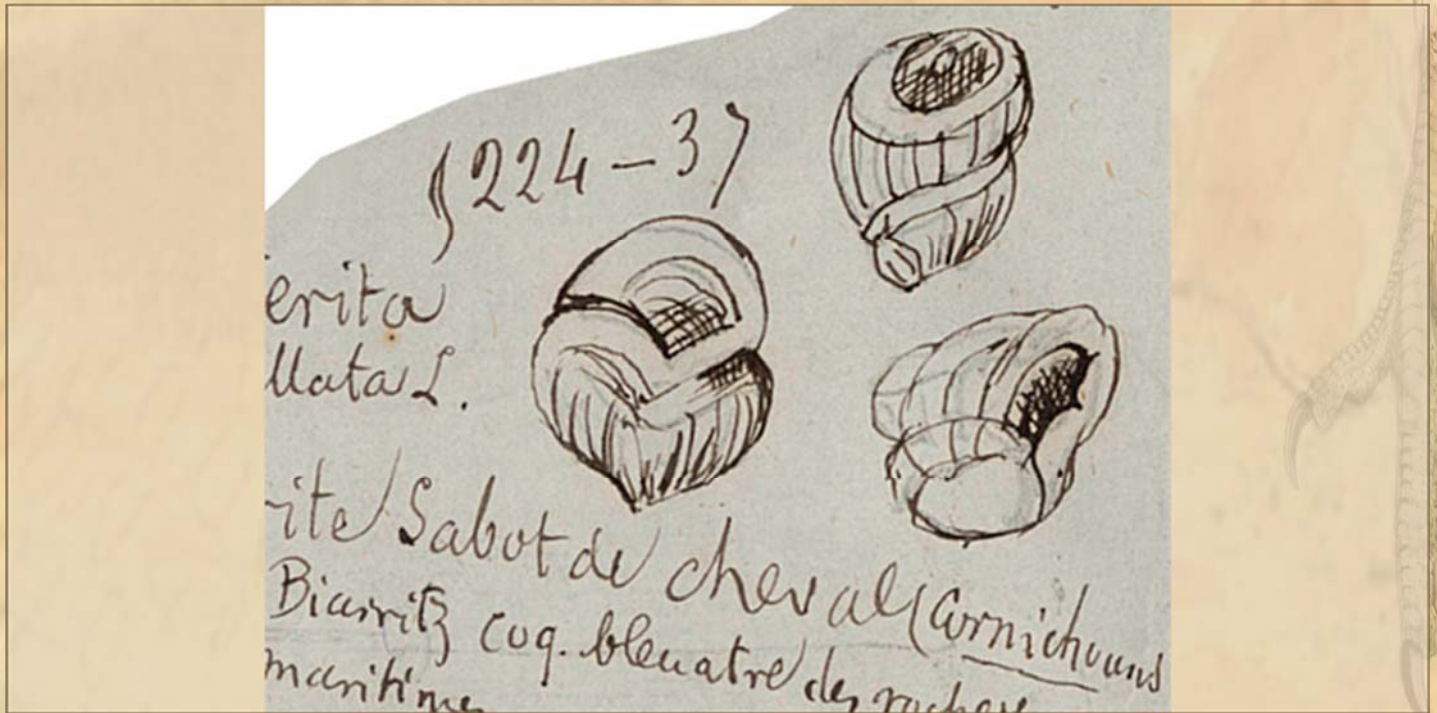 §224-37
erita
llata L.
rite Sabot de cheval (Cornichouns
Biarritz coq. bleuatre des rochers
maritime